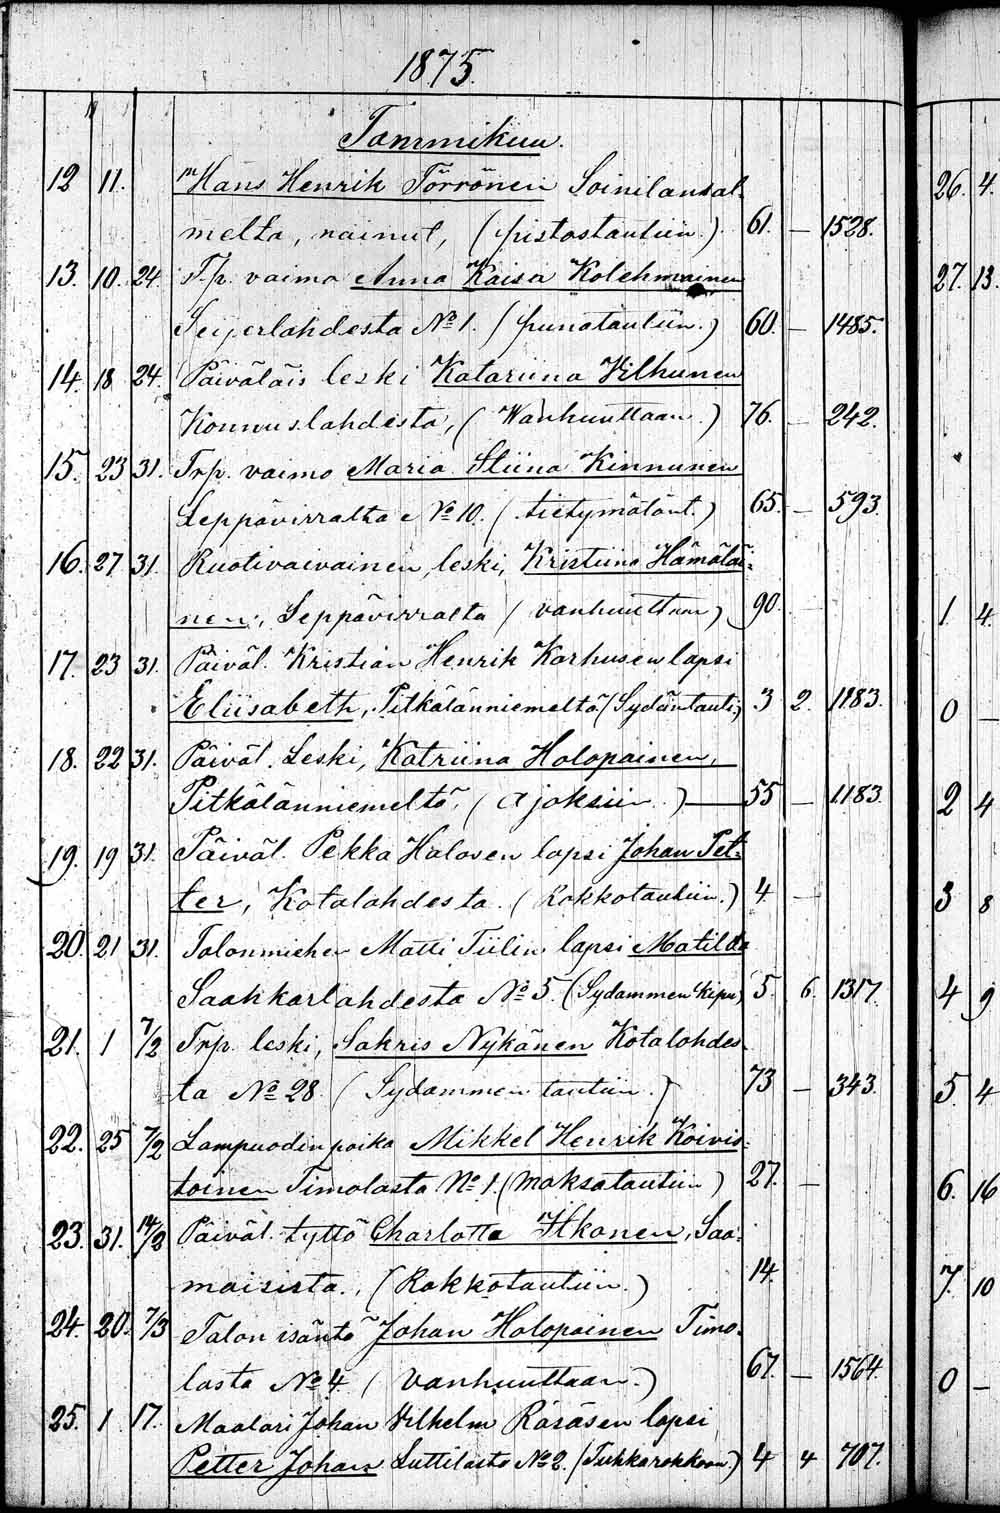 1875.
Tammikuu.
12 11. Hans Henrik Törrönen Soinilansal-
melta, nainut, (pistostautiin.) 61. — 1528.
13. 10. 24. T.p. vaimo Anna Kaisa Kolehmainen
Seijerlahdesta No 1. (punatautiin.) 60. — 1485.
14. 18 24. Päiväläis leski Katariina Vilhunen
Konnuslahdesta, (Wanhuuttaan.) 76. — 242.
15. 23 31. Trp. vaimo Maria Stiina Kinnunen
Leppävirralta No 10. (tietymätönt.) 65. — 593.
16. 27 31. Ruotivaivainen, leski, Kristiina Hämäläi-
nen, Leppävirralta (vanhuuttaan) 90. —
17. 23 31. Päiväl. Kristian Henrik Karhusen lapsi
Eliisabeth, Pitkälänniemeltä (Sydäntauti) 3 2. 1183.
18. 22 31. Päiväl. Leski, Katriina Holopainen,
Pitkälänniemeltä, (Ajoksiin.) — 55 — 1183.
19. 19 31. Päiväl. Pekka Halosen lapsi Johan Pet-
ter, Kotalahdesta. (Rokkotautiin.) 4. —
20. 21 31. Talonmiehen Matti Tiilin lapsi Matilda
Saahkarlahdesta No 5. (Sydammen kipu) 5. 6. 1317.
21. 1 7/2 Trp. leski, Sakris Nykänen Kotalahdes-
ta No 28 (Sydammen tautiin.) 73 — 343.
22. 25 7/2 Lampuodin poika Mikkel Henrik Koivis-
toinen Timolasta No 1. (maksatautiin) 27. —
23. 31. 14/2 Päiväl. tyttö Charlotta Itkonen, Saa-
maisista., (Rokkotautiin.) 14.
24. 20. 7/3 Talon isäntä Johan Holopainen Timo-
lasta No 4. (Vanhuuttaan.) 67. — 1564.
25. 1 17. Maalari Johan Vilhelm Räsäsen lapsi
Petter Johan Luttilasta No 2. (Tuhkarokkoon.) 4 4 707.
26. 4.
27. 13.
1. 4.
0 —
2 4
3 8
4 9
5. 4
6. 16
7. 10
0 —